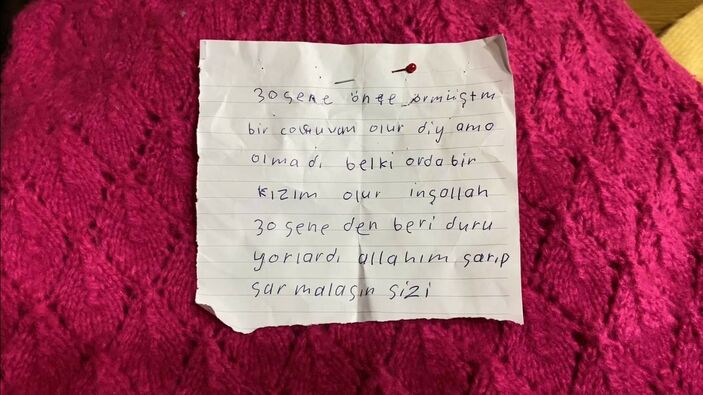 30 şene önçe örmüştm
bir coçuvum olur diy amo
olmadı belki orda bir
kızım olur inşallah
30 şene den beri duru
yorlardı allahım şarıp
şarmalaşın şizi